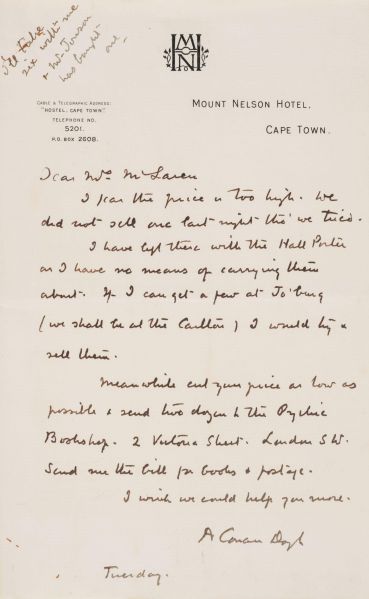 I'll take
six with me
& Mr Jonson
has bought
one.
MHN
CABLE & TELEGRAPHIC ADDRESS:
"HOSTEL, CAPE TOWN".
TELEPHONE NO.
5201.
P.O. BOX 2608.
MOUNT NELSON HOTEL,
CAPE TOWN.
Dear Mrs McLaren
I fear the price is too high. We
did not sell one last night tho' we tried.
I have left these with the Hall Porter
as I have no means of carrying them
about. If I can get a few at Jo'burg
(we shall be at the Carlton) I would try &
sell them.
Meanwhile cut your price as low as
possible & send two dozen to the Psychic
Bookshop. 2 Victoria Street. London SW.
Send me the bill for books & postage.
I wish we could help you more.
A Conan Doyle
Tuesday.